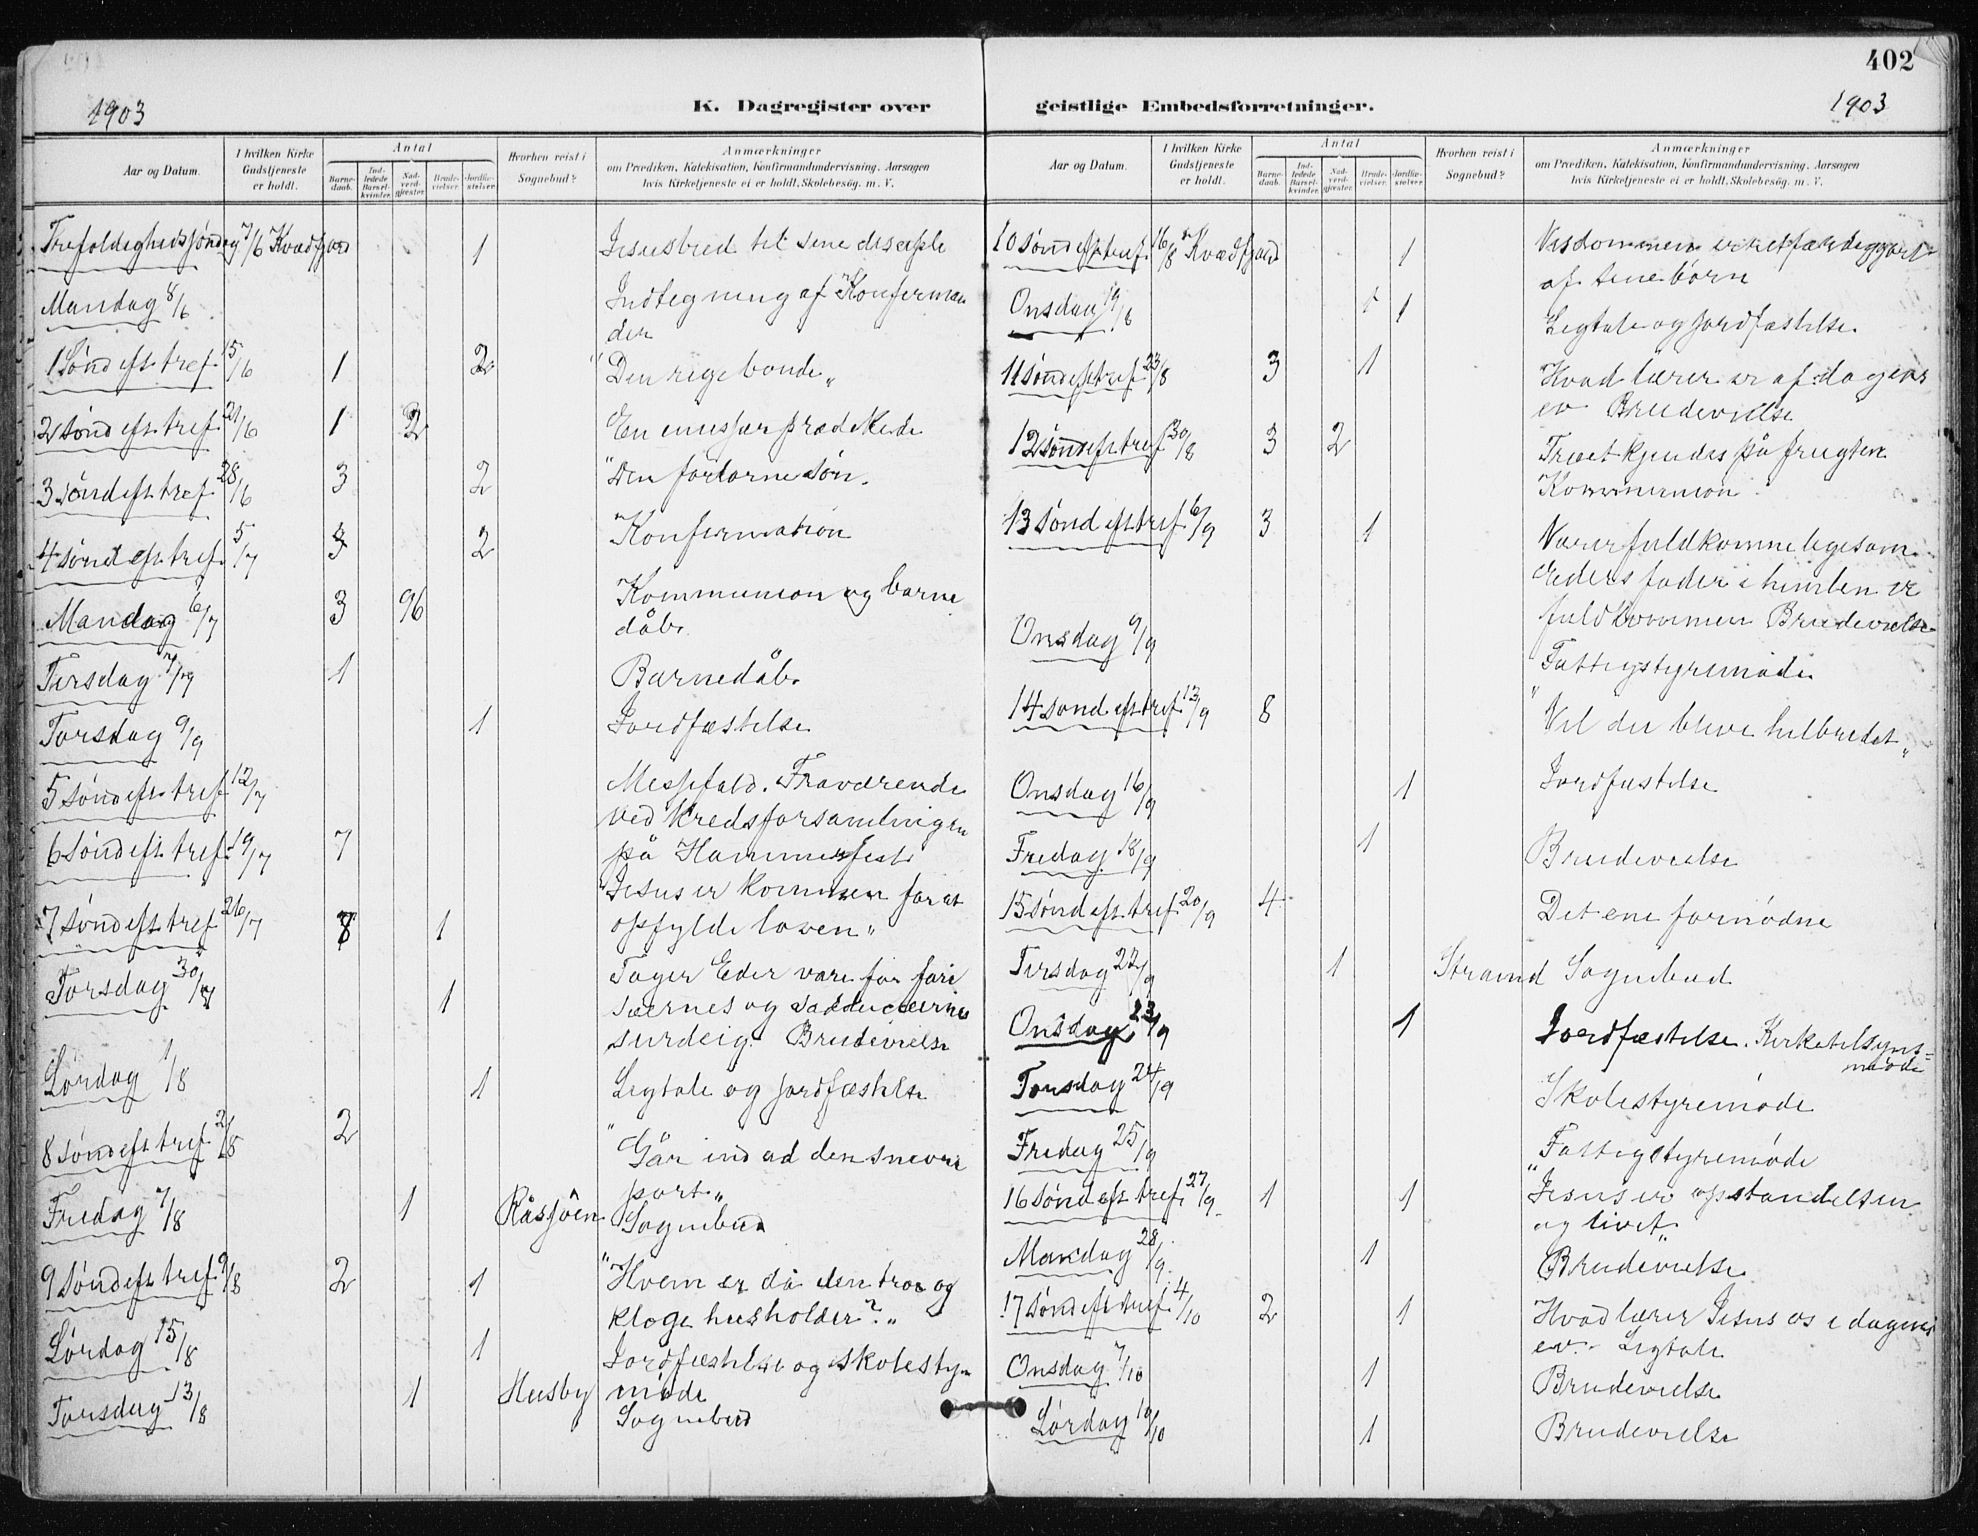 402
1903
K. Dagregister over
Aar og Datum.
I hvilken Kirke Gudstjeneste er holdt.
Antal
Barne-daab.
Ind-ledede Barsel-kvinder.
Nad-verd-gjæster.
Brude-vielser.
Jordfæ-stelser.
Hvorhen reist i Sognebud?
Anmærkninger
om Prædiken, Katekisation, Konfirmandundervisning. Aarsagen
hvis Kirketjeneste ei er holdt. Skolebesøg. m. V.
Trefoldighedssøndag 7/6 Kvædfjord 1 Jesusbud til sine disciple
Mandag 8/6 Indtegning af Konfirman
der
1 Sønd eft tref. 15/6 1 2 "Den rige bonde"
2 sønd eft tref. 21/6 1 2 En emissær prædikede
3 sønd eft tref 28/6 3 2 "Den fortorne søn.
4 sønd eft tref. 5/7 3 2 "Konfirmation
Mandag 6/7 3 96 Kommunion og barne
dåb.
Tirsdag 7/7 1 Barnedåb.
Torsdag 9/9 1 Jordfæstelse
5 sønd eft tref 12/7 Messefald. Fraværende
ved kredsforsamlingen
på Hammerfest
6 Sønd eft tref. 19/7 7 "Jesus er kommen for at
opfylde loven"
7 sønd eft tref 26/7 8 1 Tager Eder vare for fari
sæernes og sadducæernes
surdeig. Brudevielse
Torsdag 30/7 1
Lørdag 1/8 1 Ligtale og jordfæstelse
8 sønd eft tref 2/8 2 "Går ind ad den snevre
port"
Fredag 7/8 1 Råsjøen Sognebud
9 Sønd eft tref 9/8 2 1 "Hvem er då den troe og
kloge husholder?"
Lørdag 15/8 1 Jordfæstelse og skolesty-
møde
Torsdag 13/8 1 Husby Sognebud
geistlige Embedsforretninger.
1903
Aar og Datum.
I hvilken Kirke Gudstjeneste er holdt.
Antal
Barne-daab.
Ind-ledede Barsel-kvinder.
Nad-verd-gjæster.
Brude-vielser.
Jordfæ-stelser.
Hvorhen reist i Sognebud?
Anmærkninger
om Prædiken, Katekisation, Konfirmandundervisning. Aarsagen
hvis Kirketjeneste ei er holdt. Skolebesøg. m. V.
10 sønd eft tref. 16/8 Kvædfjord 1 Visdommen er retfærdiggjort
af sine børn
Onsdag 19/8 1 Ligtale og jordfæstelse
11 sønd eft tref 23/8 3 1 Hvad lærer er af dagens
ev Brudevielse
12 sønd eft tref 30/8 3 2 Træet kjendes på frugten
Kommunion
13 sønd eft tref. 6/9 3 1 Værer fuldkomne ligesom
Eders fader i himlen er
fuldkommen Brudevielse
Onsdag 9/9 Fattigstyremøde
14 sønd eft tref 13/9 8 "Vil du blive helbredet"
Onsdag 16/9 1 Jordfæstelse
Fredag 18/9 1 Brudevielse
15 sønd eft tref 20/9 4 Det ene fornødne
Tirsdag 22/9 1 Strand Sognebud
Onsdag 23/9 1 Jordfæstelse. Kirketilsyns-
møde
Torsdag 24/9 Skolestyremøde
Fredag 25/9 Fattigstyremøde
16 sønd eft tref. 27/9 1 1 "Jesus er opstandelsen
og livet"
Mandag 28/9 1 Brudevielse
17 sønd eft tref 4/10 2 1 Hvad lærer Jesus os i dagens
ev. Ligtale
Onsdag 7/10 1 Brudevielse
Lørdag 10/10 1 Brudevielse